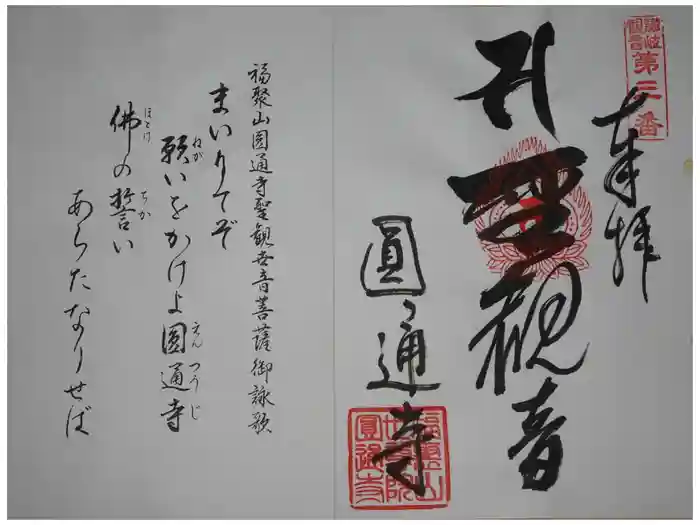 讃岐
第三番
奉拝
聖観音
圓通寺
福聚山
圓通寺
福聚山圓通寺聖観世音菩薩御詠歌
まいりてぞ
ねが えんつうじ
願いをかけよ圓通寺
ほとけ ちか
佛の誓い
あらたなりせば